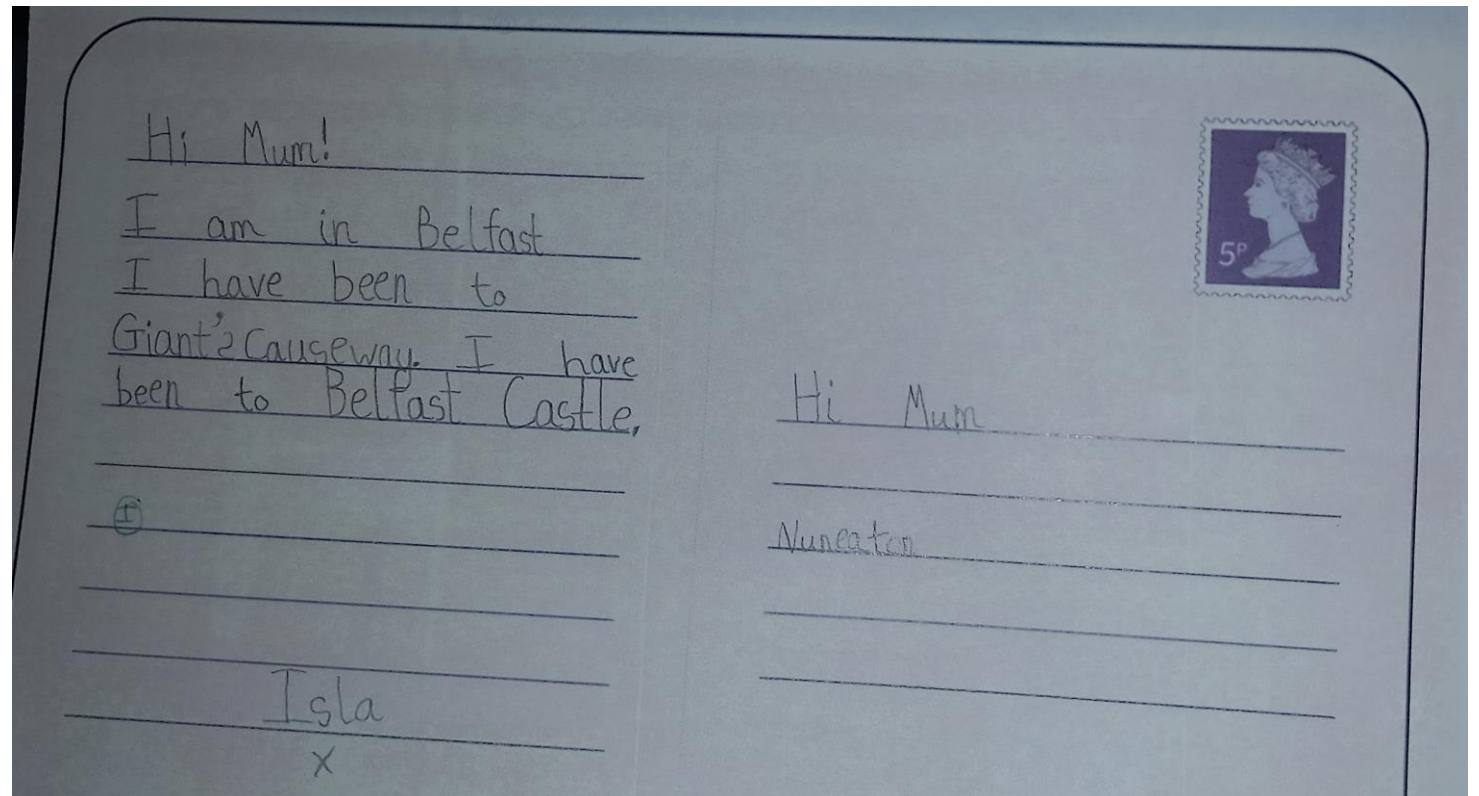 Hi Mum!
I am in Belfast
I have been to
Giant's Causeway. I have
been to Belfast Castle,
I
Isla
x
5P
Hi Mum
Nuneaton